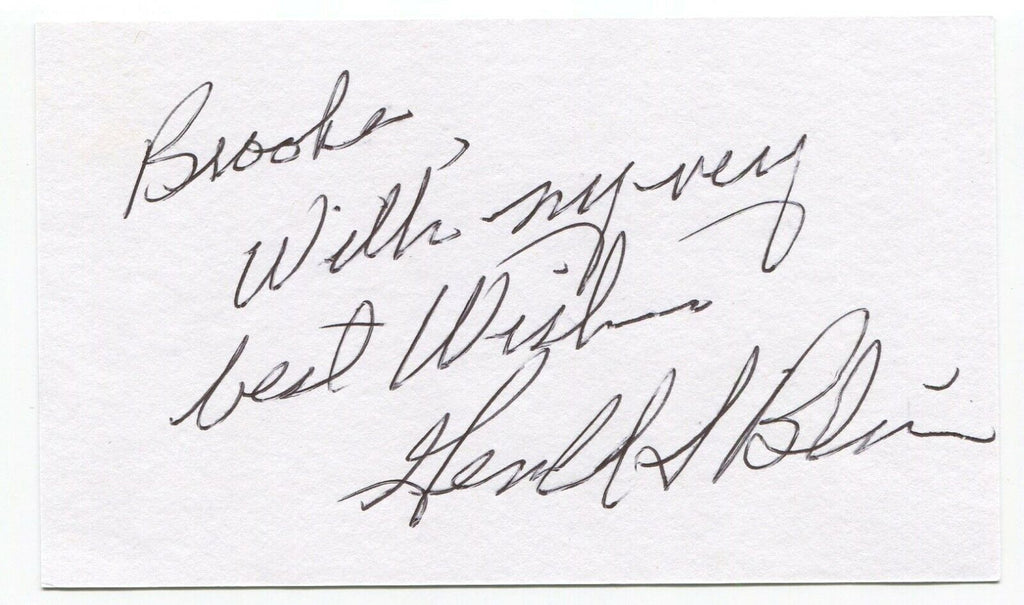 Brooke,
With my very
best Wishes
Gerald S Blaine